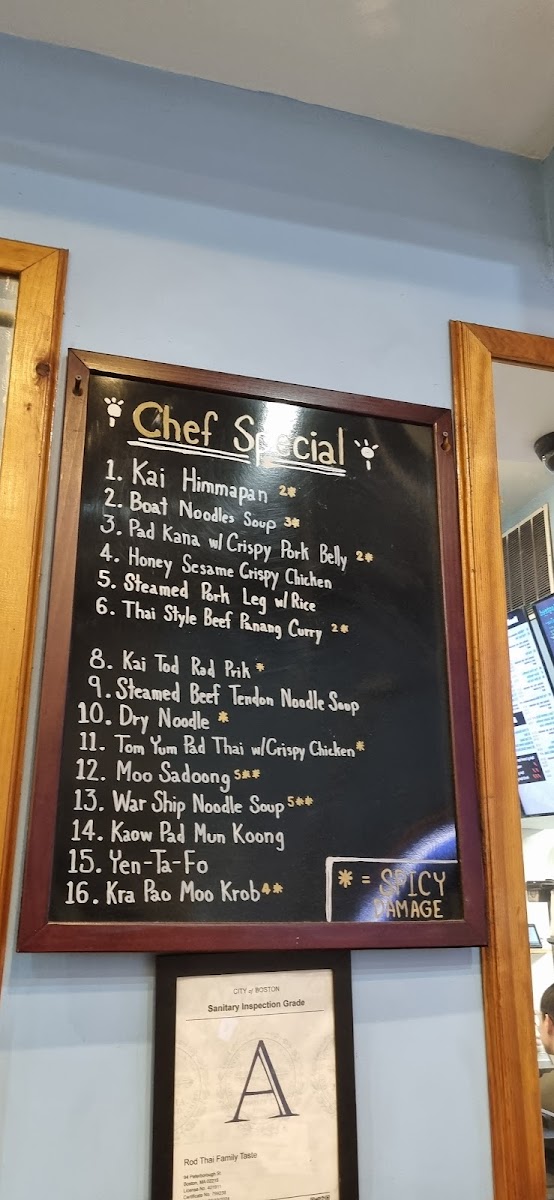 Chef Special
1. Kai Himmapan 2*
2. Boat Noodles Soup 3*
3. Pad Kana w/ Crispy Pork Belly 2*
4. Honey Sesame Crispy Chicken
5. Steamed Pork Leg w/ Rice
6. Thai Style Beef Panang Curry 2*
8. Kai Tod Rad Prik *
9. Steamed Beef Tendon Noodle Soup
10. Dry Noodle *
11. Tom Yum Pad Thai w/ Crispy Chicken *
12. Moo Sadoong 5**
13. War Ship Noodle Soup 5**
14. Kaow Pad Mun Koong
15. Yen-Ta-Fo
16. Kra Pao Moo Krob 4*
* = SPICY
DAMAGE
CITY of BOSTON
Sanitary Inspection Grade
A
Rod Thai Family Taste
94 Peterborough St
Boston, MA 02215